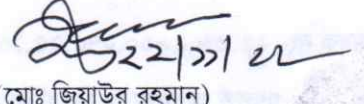 ২২/১১/২২
(মোঃ জিয়াউর রহমান)